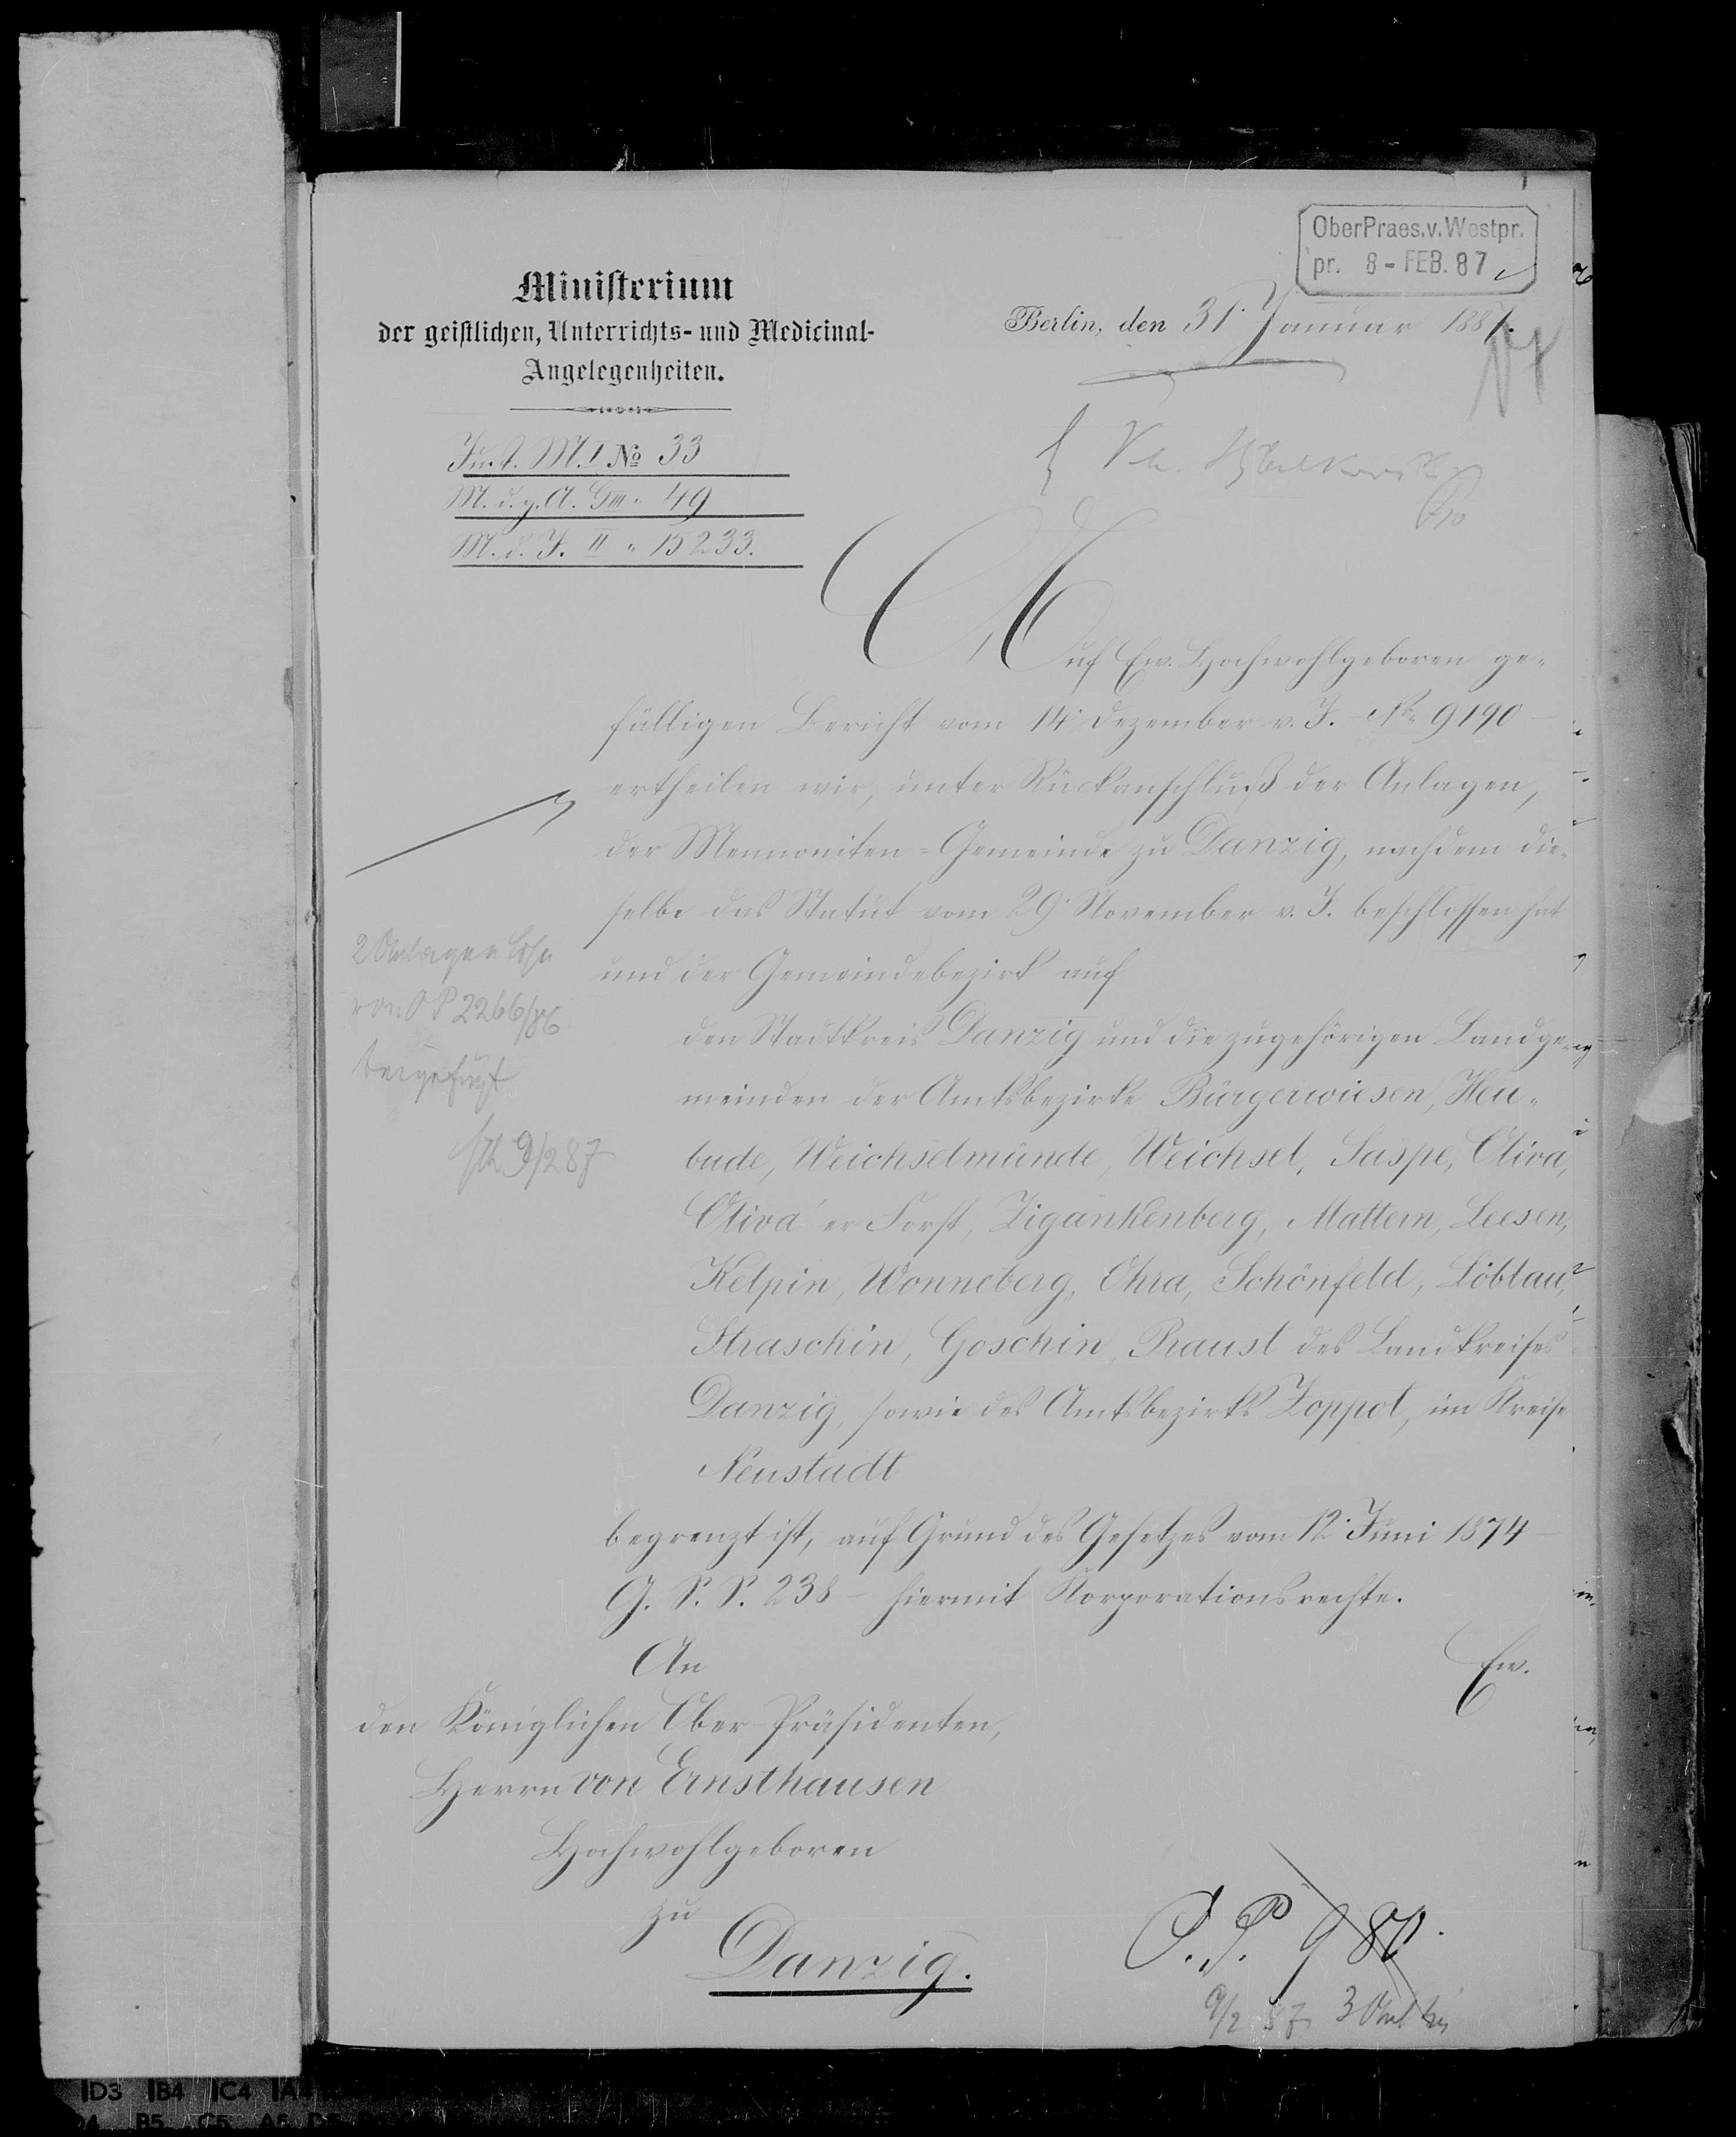 OberPraes.v.Westpr.
pr. 8-FEB.87
Ministerium
der geistlichen, Unterrichts- und Medicinal-
Angelegenheiten.
Berlin, den 31. Januar 1887.
Just. M. I No 33
M. d. g. A. GIII " 49
M. d. I. II " 15233.
Auf Ew. Hochwohlgeboren ge-
fälligen Bericht vom 14. Dezember v. J. - No 9190 -
ertheilen wir, unter Rückanschluß der Anlagen,
der Mennoniten-Gemeinde zu Danzig, nachdem die-
selbe das Statut vom 29. November v. J. beschlossen hat
und der Gemeindebezirk auf
den Stadtkreis Danzig und die zugehörigen Landge-
meinden der Amtsbezirke Bürgerwiesen, Heu-
bude, Weichselmünde, Weichsel, Saspe, Oliva,
Oliva'er Forst, Zigankenberg, Mattern, Leesen,
Kelpin, Wonneberg, Ohra, Schönfeld, Löblau,
Straschin, Goschin, Praust des Landkreises
Danzig, sowie des Amtsbezirks Zoppot, im Kreise
Neustadt
begrenzt ist, auf Grund des Gesetzes vom 12. Juni 1874 -
G. S. S. 238 - hiermit Korporationsrechte.
2 Anlagen
von OP 2266/86
beigefügt
9/2 87
An
Ew.
den Königlichen Ober-Präsidenten,
Herrn von Ernsthausen
Hochwohlgeboren
zu
Danzig.
O. P. 980.
9/2 87